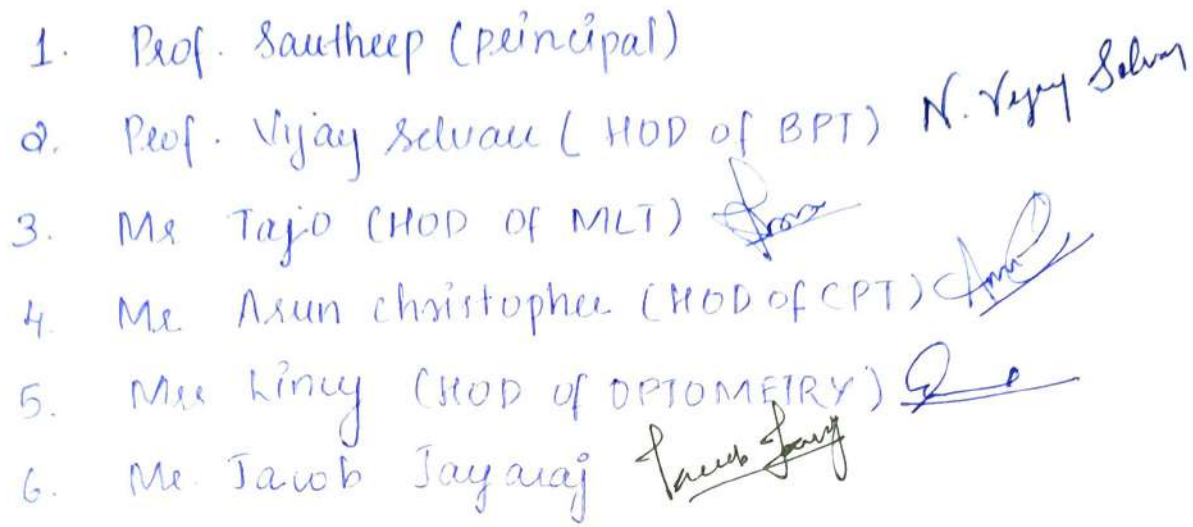 1. Prof. Santheep (principal)
2. Prof. Vijay Selvan (HOD of BPT) N. Vijay Selvan
3. Mr Tajo (HOD Of MLT)
4. Mr. Arun christopher (HOD of CPT)
5. Mrs Lincy (HOD of OPTOMETRY)
6. Mr. Jacob Jayaraj